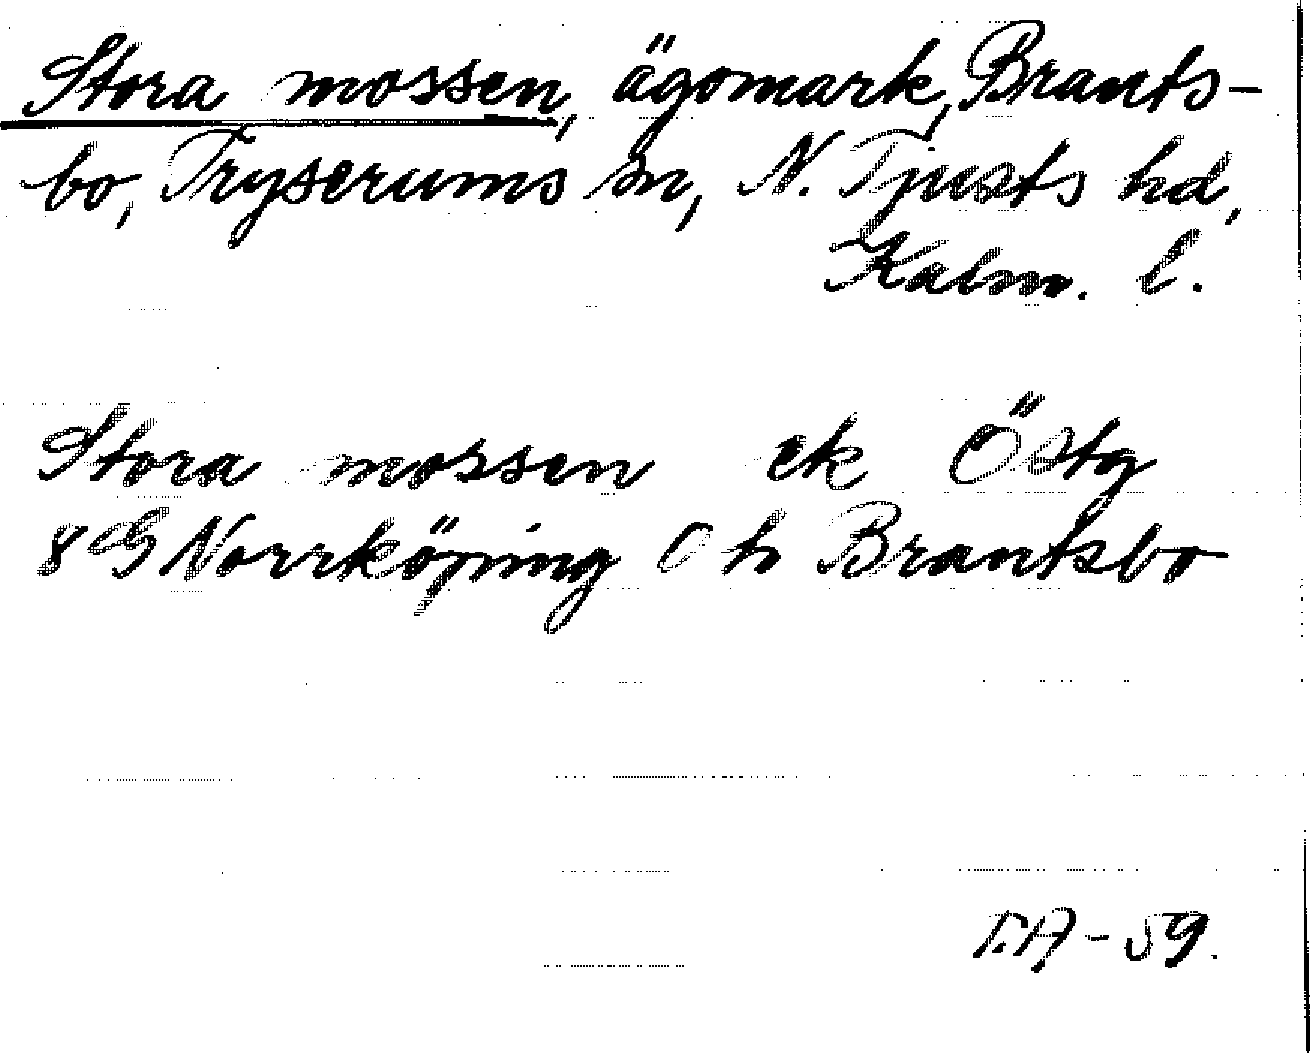 Stora mossen, ägomark, Brants-
bo, Tryserums sn, N. Tjusts hd,
Kalm. l.
Stora mossen ek Östg
8G Norrköping Ö h Brantsbo
T.A-59.